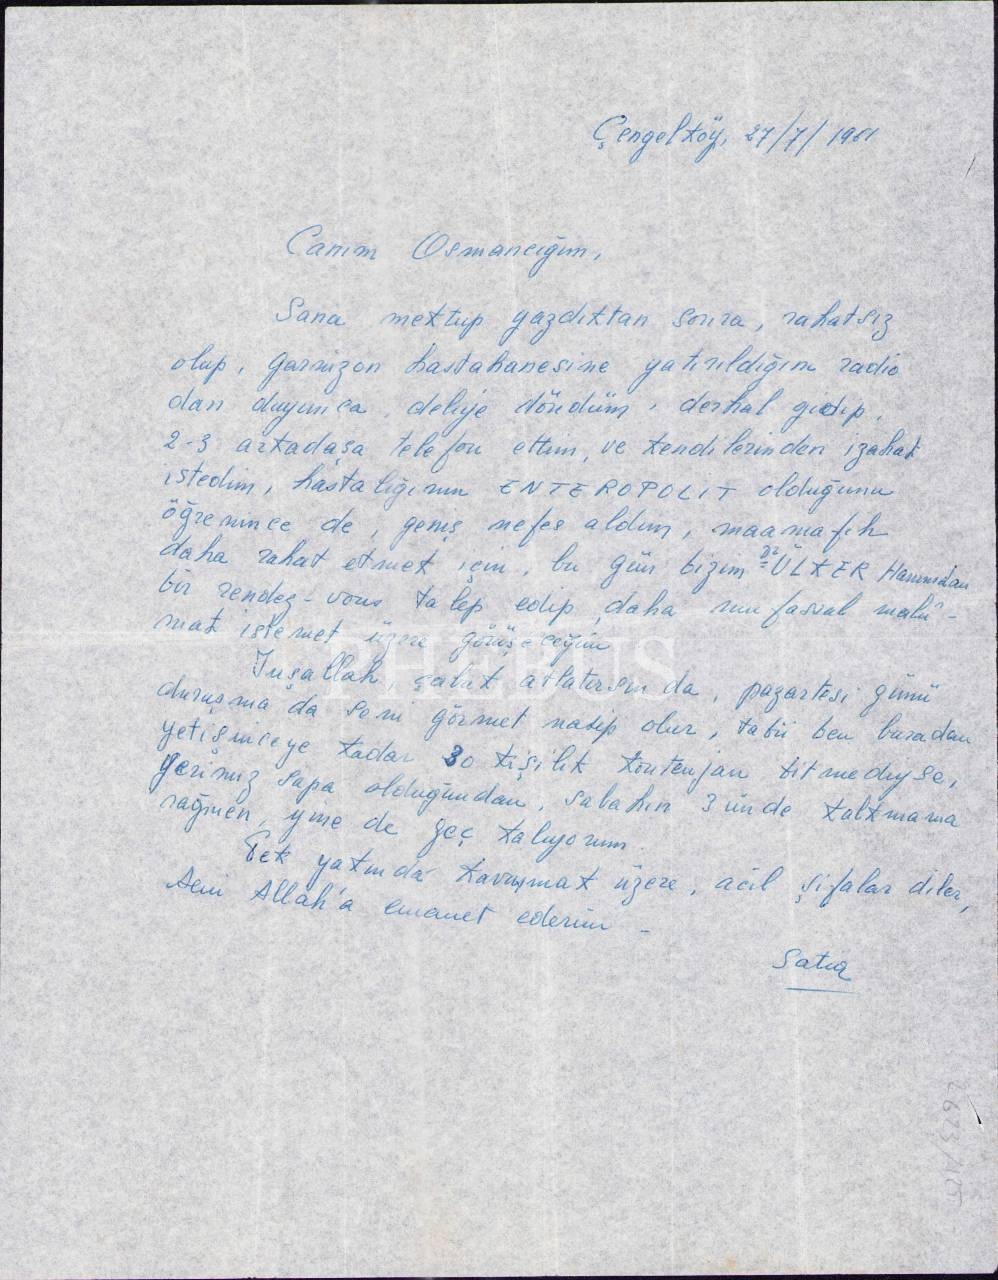 Çengelköy, 27/7/1961
Canım Osmancığım,
Sana mektup yazdıktan sonra, rahatsız
olup, garnizon hastahanesine yatırıldığını radio
dan duyunca, deliye döndüm, derhal gidip,
2-3 arkadaşa telefon ettim, ve kendilerinden izahat
istedim, hastalığının ENTEROPOLIT olduğunu
öğrenince de, geniş nefes aldım, maamafih
daha rahat etmek için, bu gün bizim Dr ÜLKER Hanımdan
bir rendez-vous talep edip daha mufassal malû-
mat istemek üzere görüşeceğim
İnşallah, çabuk atlatırsın da, pazartesi günü
duruşma da seni görmek nasip olur, tabii ben buradan
yetişinceye kadar 30 kişilik kontenjan bitmediyse,
yerimiz sapa olduğundan, sabahın 3 ünde kalkmama
rağmen, yine de geç kalıyorum.
Pek yakında kavuşmak üzere, acil şifalar diler,
seni Allah'a emanet ederim -
PHEBUS